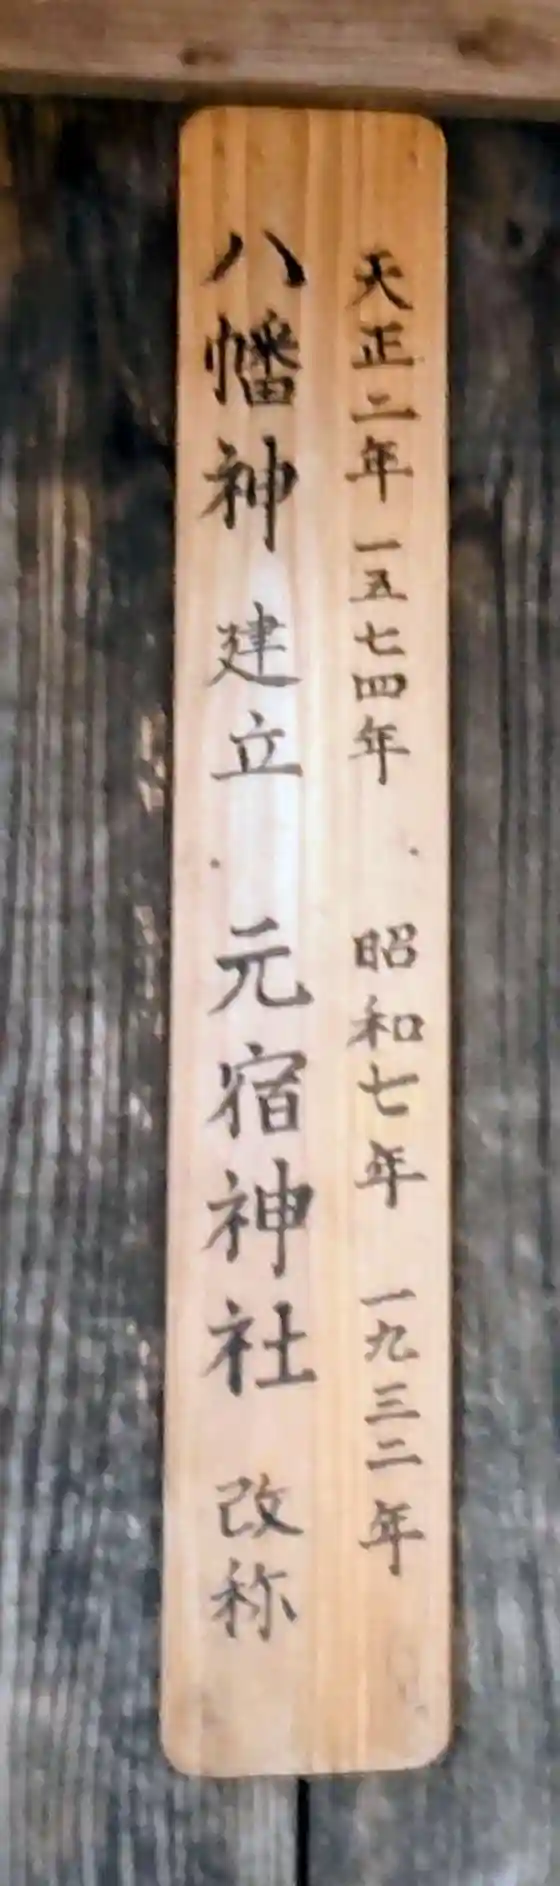 天正二年 一五七四年 昭和七年 一九三二年
八幡神 建立 元宿神社 改称